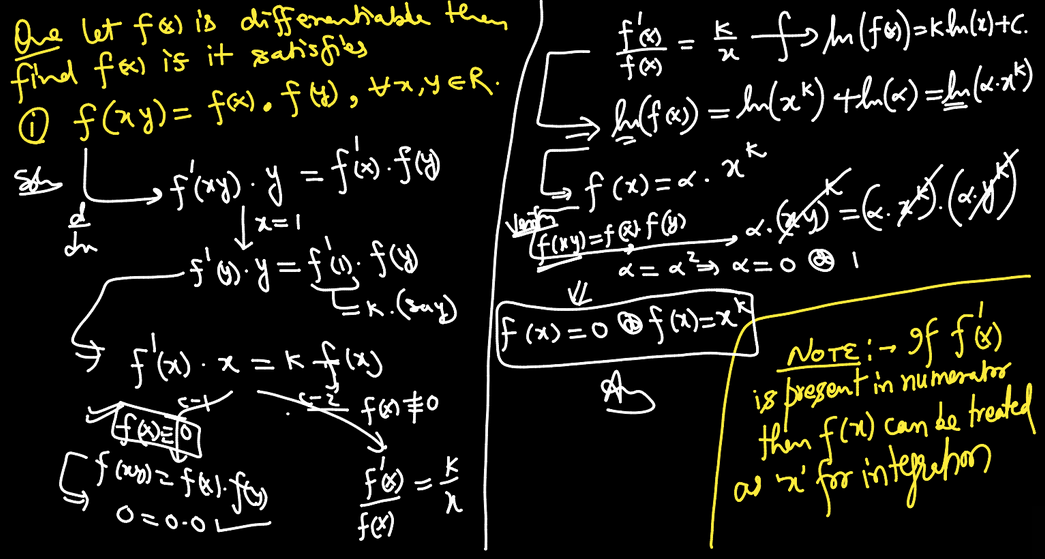 Que let f(x) is differentiable then
find f(x) is it satisfies
① f(xy) = f(x) · f(y), ∀ x, y ∈ R.
Soln
d/dx → f'(xy) · y = f'(x) · f(y)
↓ x=1
f'(y) · y = f'(1) · f(y)
= k. (say)
⇒ f'(x) · x = k f(x)
c-1 c-2 f(x) ≢ 0
f(x) ≡ 0
⇒ f(xy) = f(x) · f(y)
0 = 0·0
f'(x)/f(x) = k/x
f'(x)/f(x) = k/x → ∫ → ln(f(x)) = k.ln(x) + C.
⇒ ln(f(x)) = ln(x^k) + ln(α) = ln(α·x^k)
→ f(x) = α · x^k
Verify
f(xy) = f(x) · f(y) → α·(xy)^k = (α·x^k)·(α·y^k)
α = α² ⇒ α = 0 or 1
⇓
f(x) = 0 or f(x) = x^k
Ans
NOTE :→ If f'(x)
is present in numerator
then f(x) can be treated
as 'x' for integration